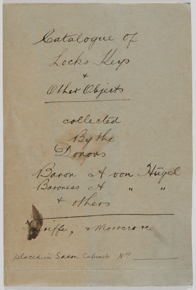 Catalogue of
Locks Keys
&
Other Objects
collected
By the
Donors
Baron A von Hügel
Baroness A " "
& others
placed in Saxon Cabinet Nº